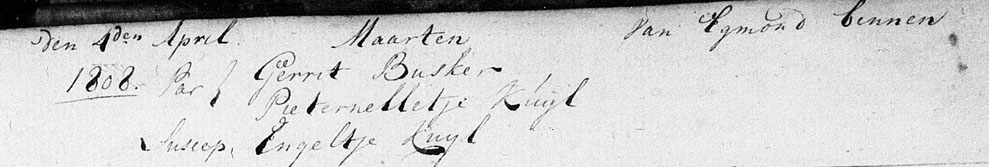 den 4den April. Maarten Van Egmond binnen
1808. Par Gerrit Busker
Pieternelletje Kuijl
Suscep. Engeltje Kuyl